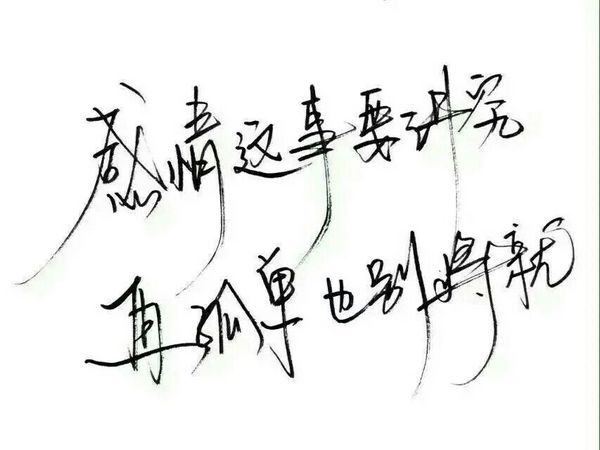 感情这事要讲究
再孤单也别将就